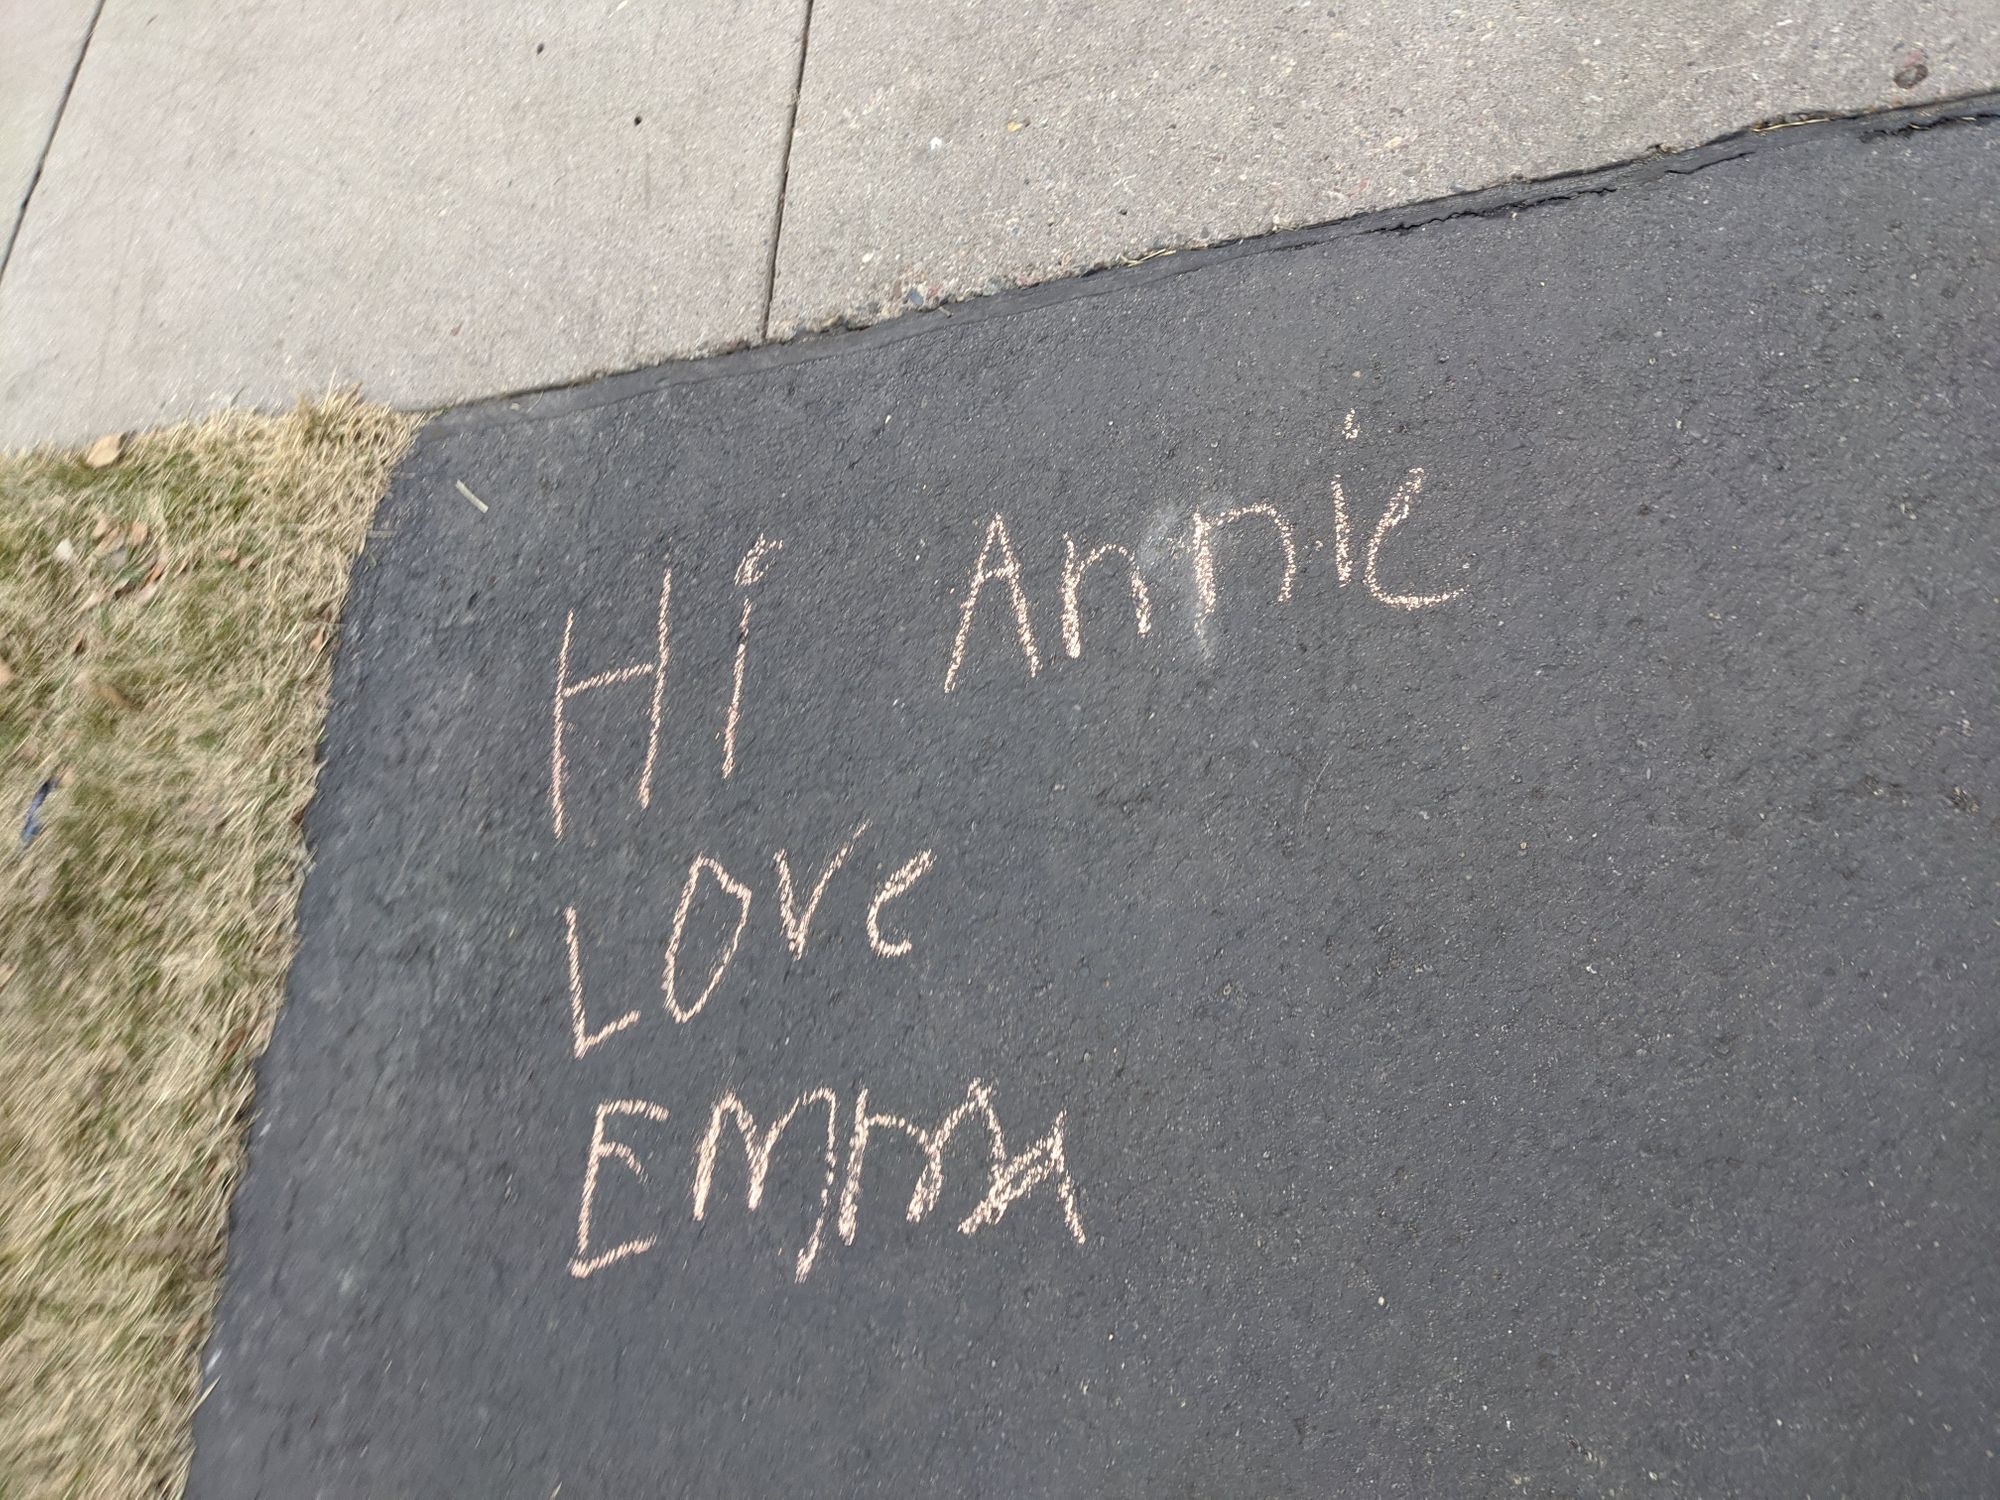 Hi Annie
Love
EMMA